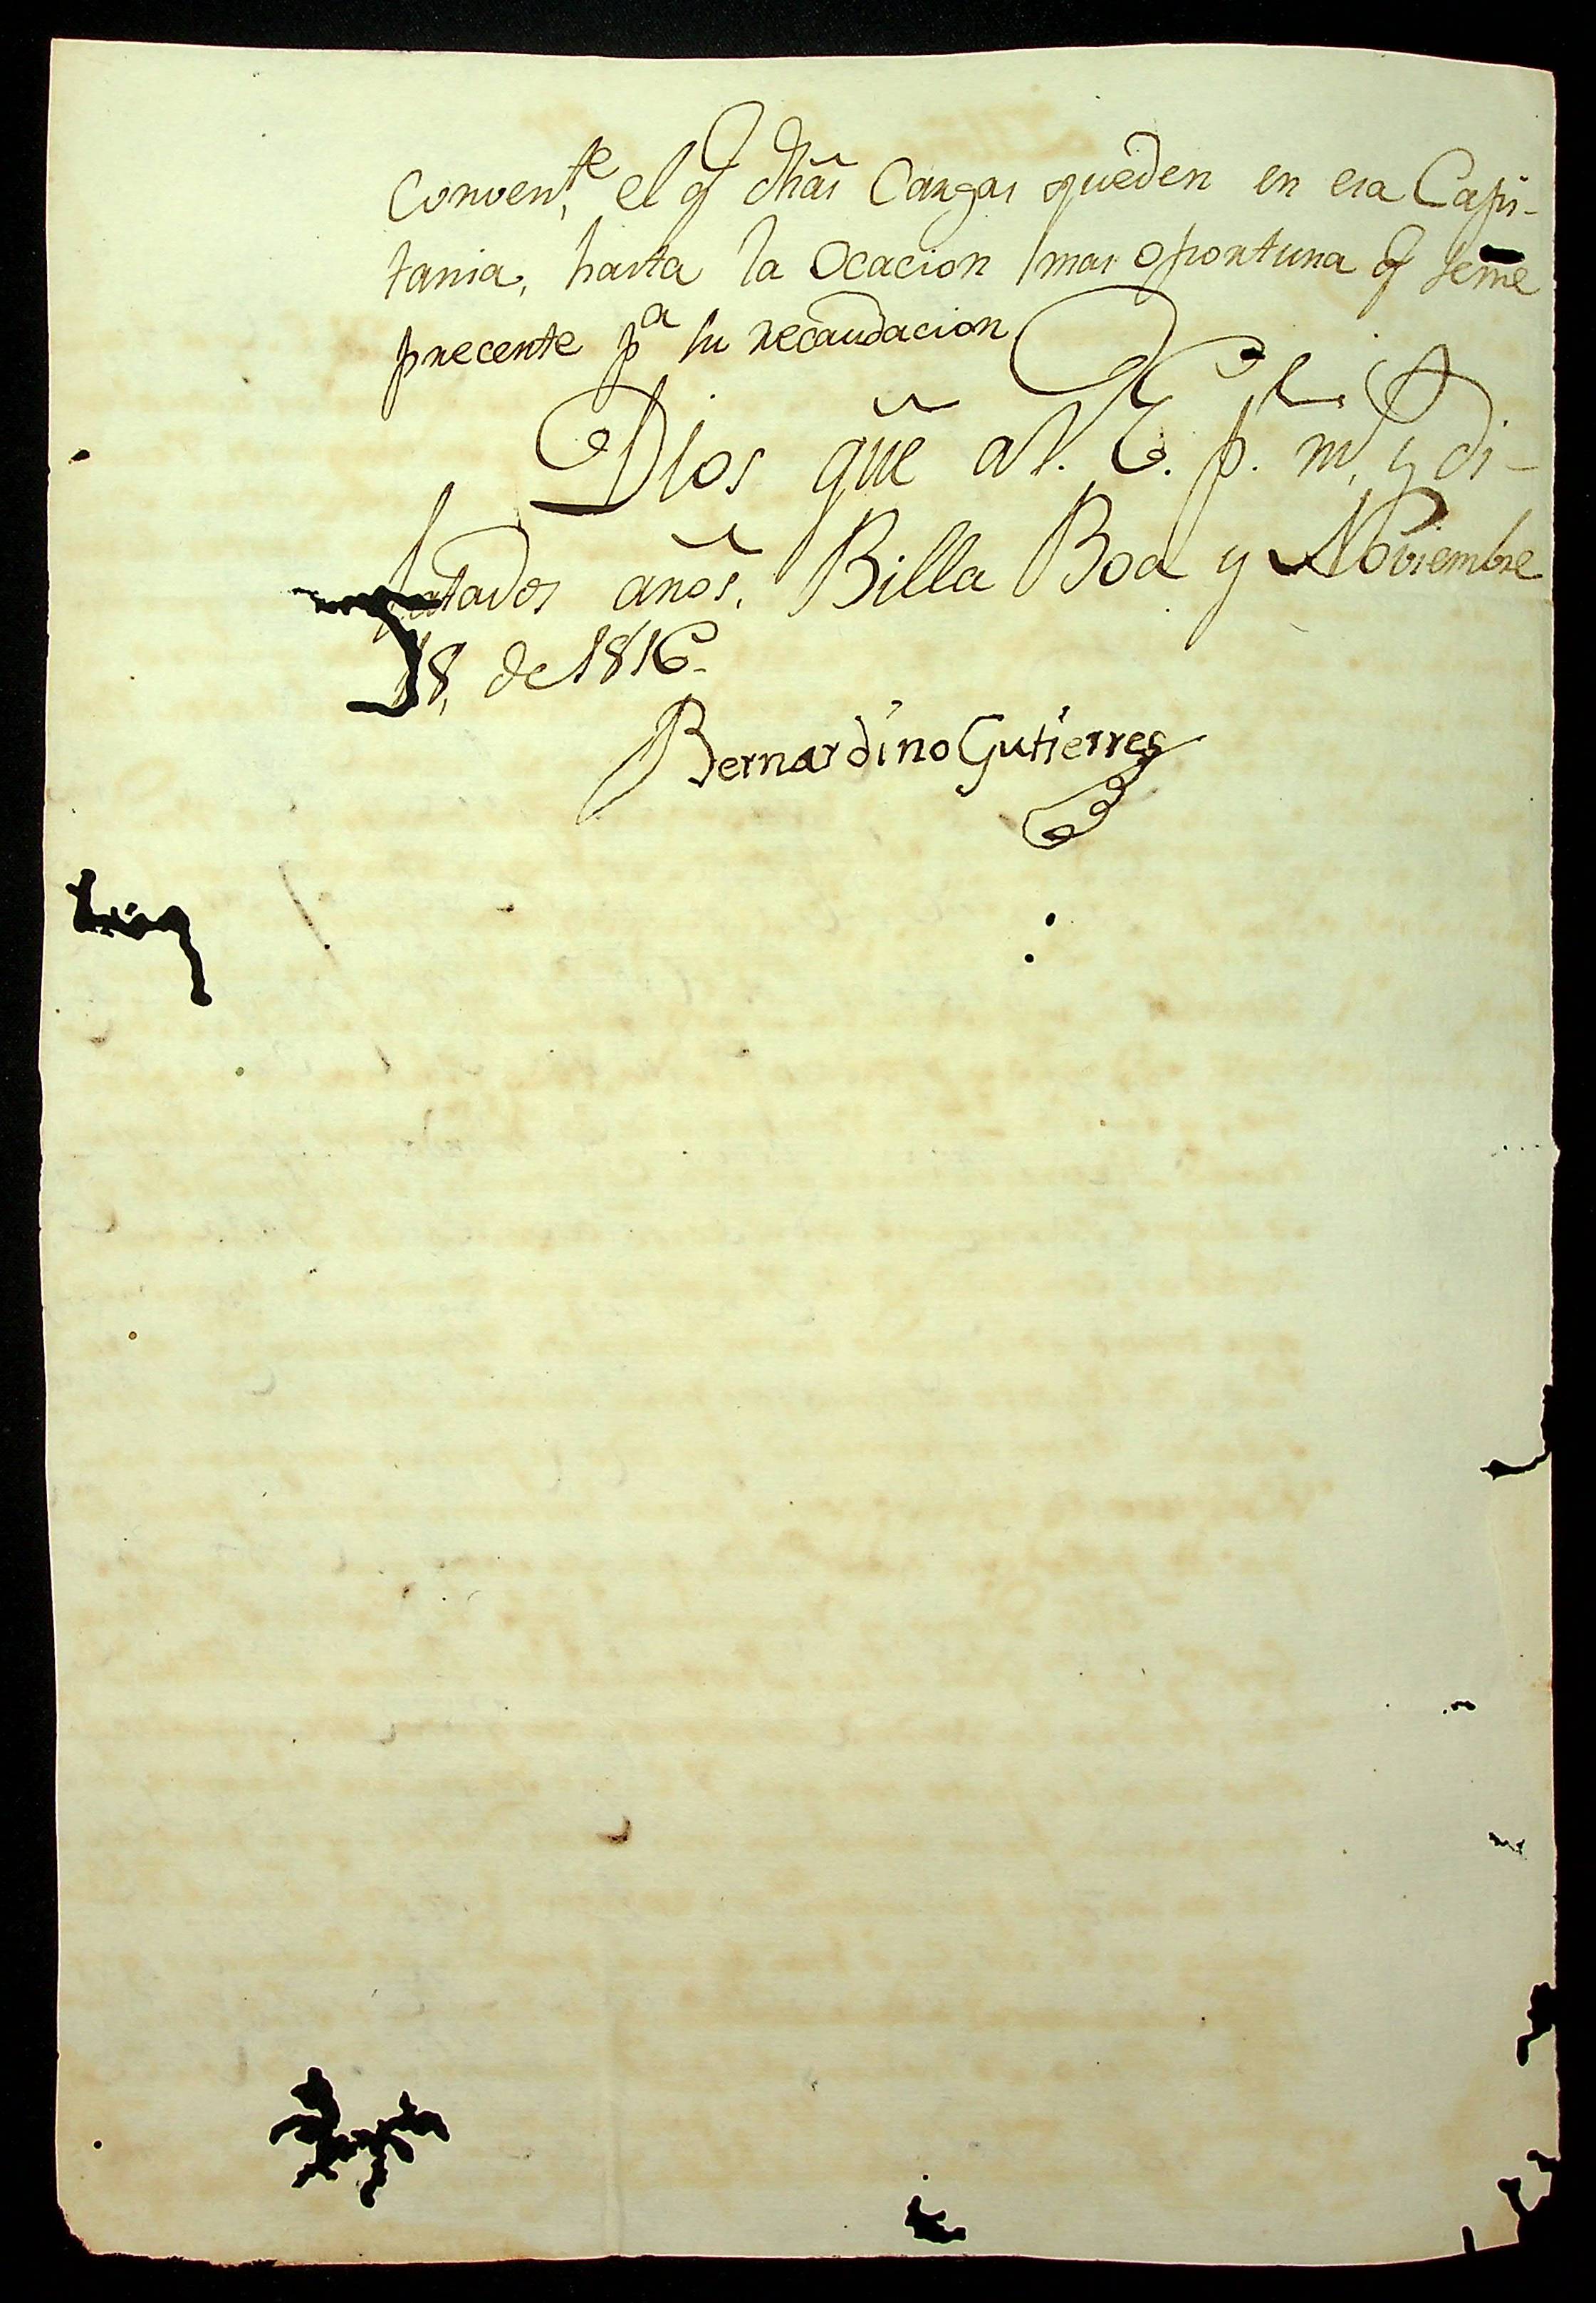 Conven.te el q dhãs Cargas queden en esa Capi-
tania, hasta la Ocacion mas oportuna q seme
precente pa su recaudacion
Dios güe aV. E. p. m.s y di-
latados años. Billa Boa y Noviembre
18, de 1816.
Bernardino Gutierres